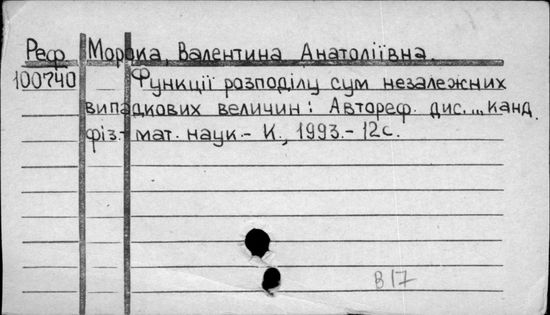 Реф Морока, Валентина Анатоліївна
100740 Функції розподілу сум незалежних
випадкових величин: Автореф. дис. ... канд.
фіз.-мат. наук.- К., 1993.- 12с.
В 17